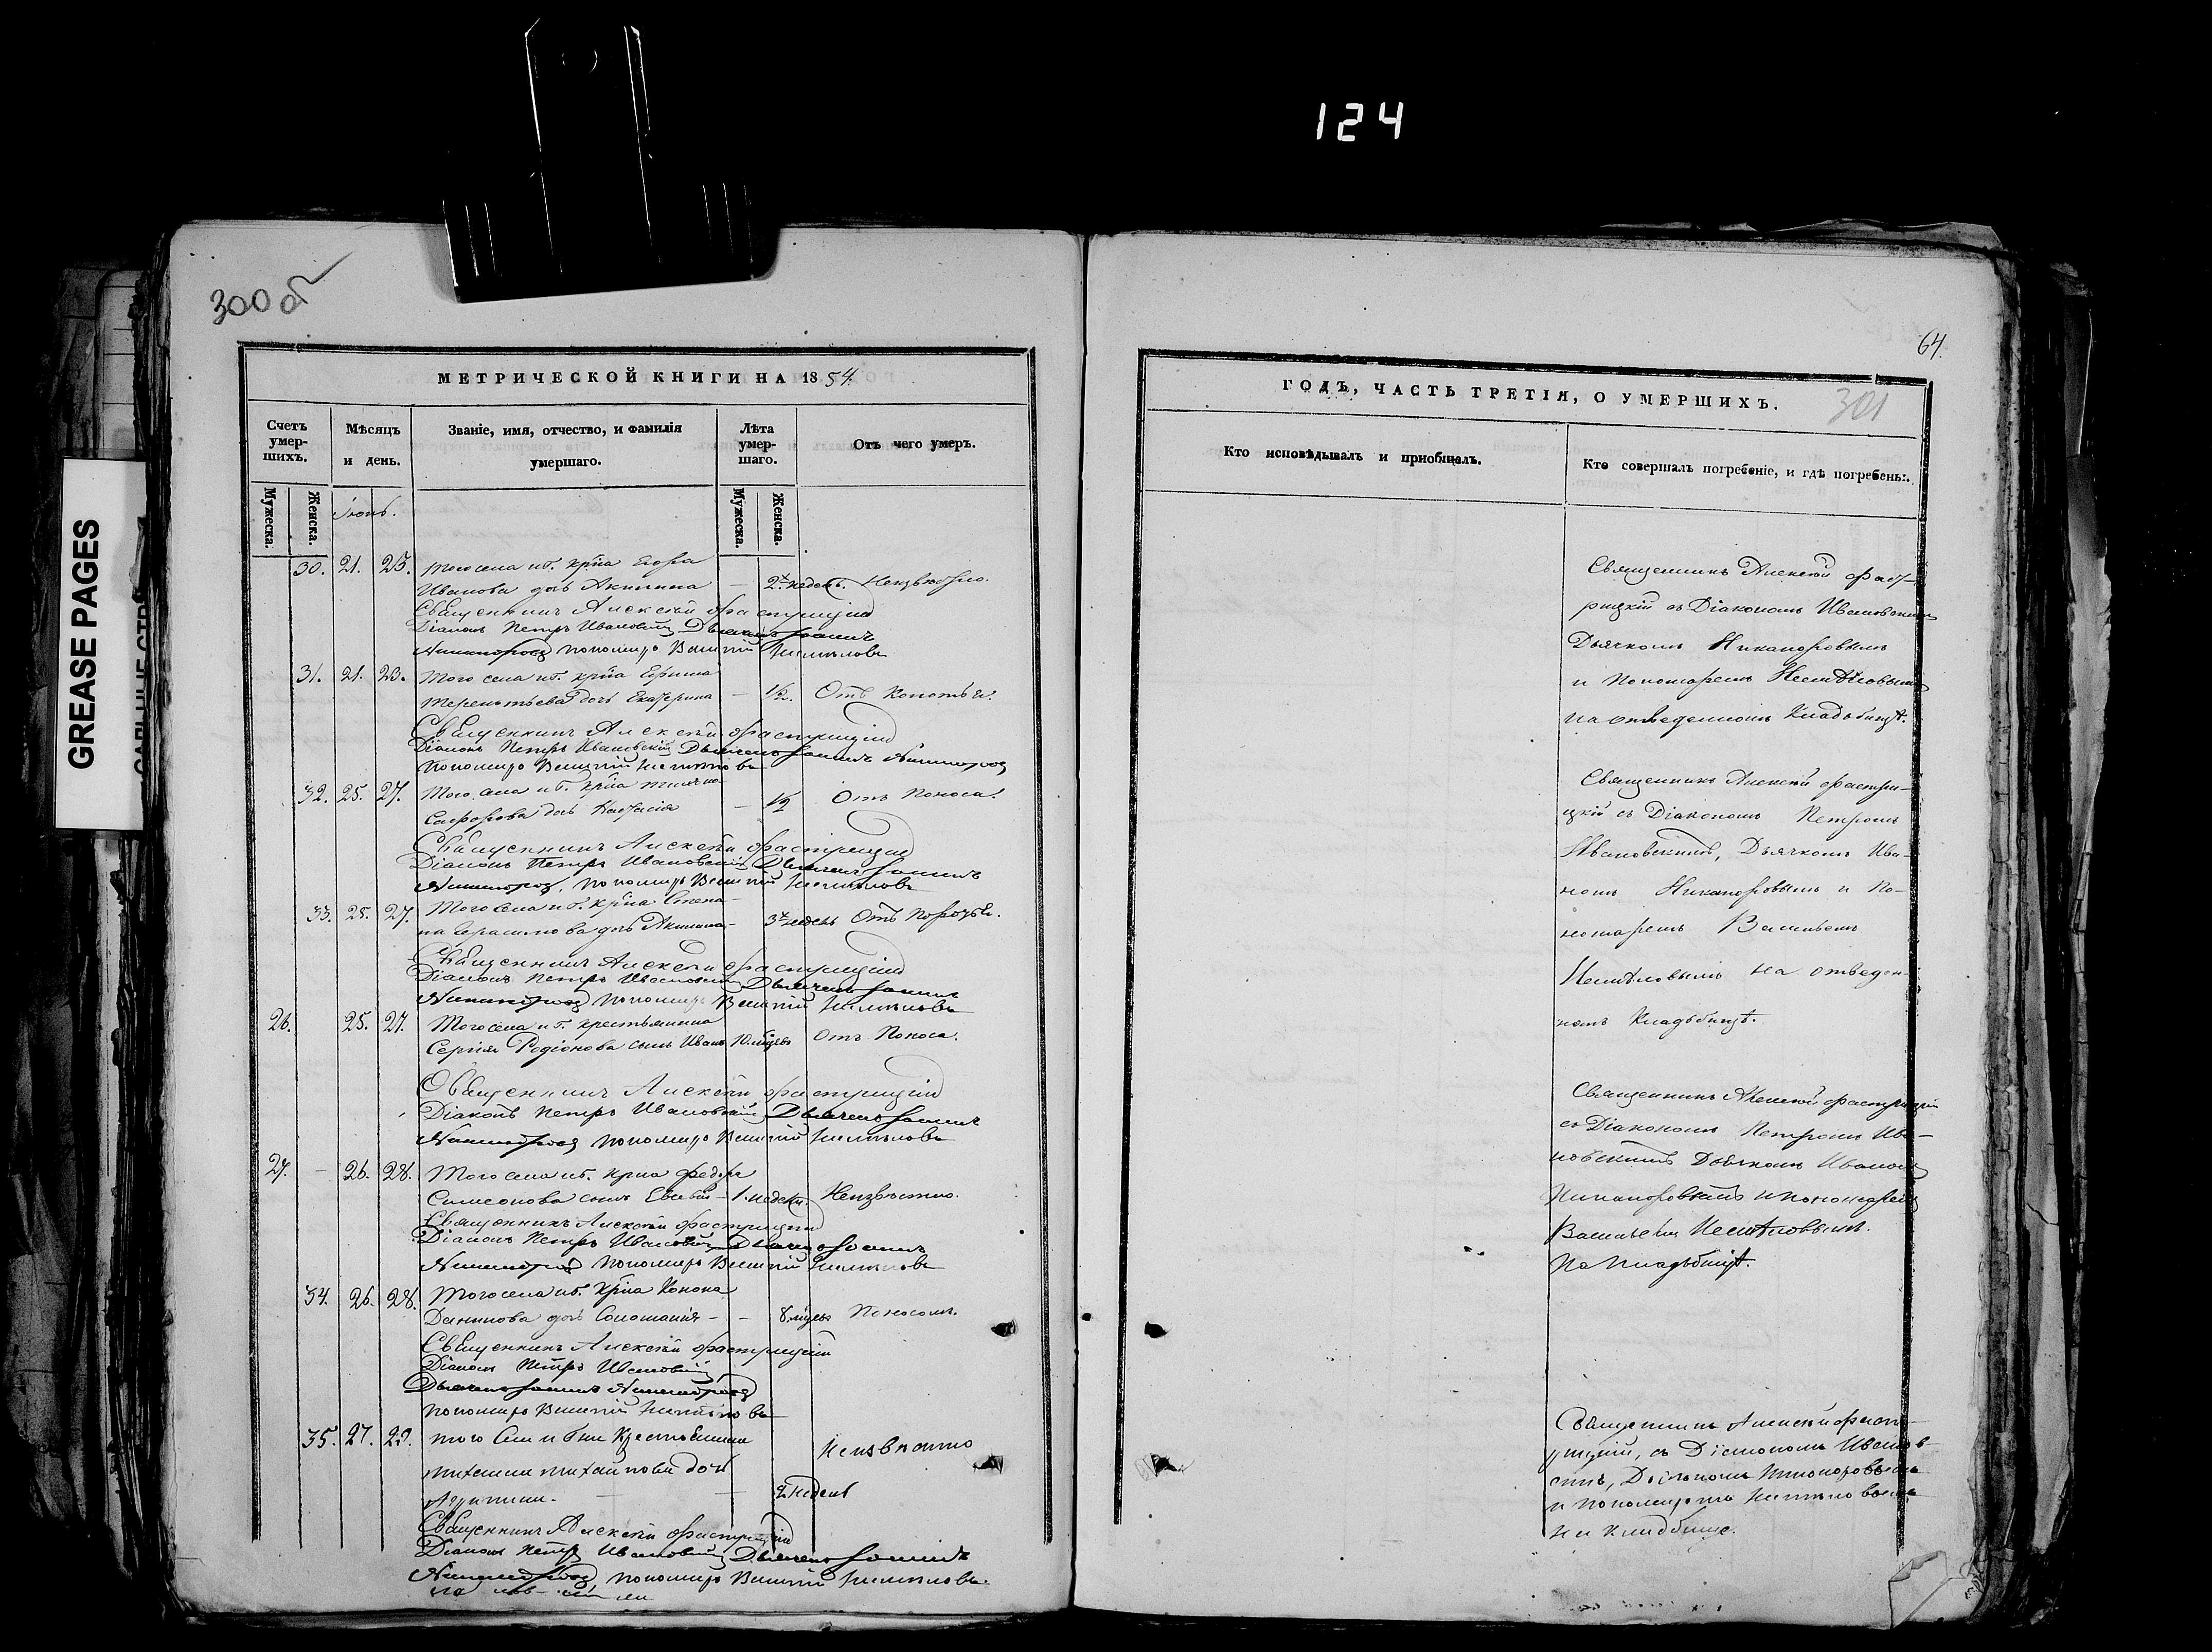 124
GREASE PAGES
300 об
МЕТРИЧЕСКОЙ КНИГИ НА 1854.
Счетъ умер-шихъ.
Мѣсяцъ и день.
Званіе, имя, отчество, и фамилія умершаго.
Лѣта умер-шаго.
Отъ чего умеръ.
Мужеска.
Женска.
Мужеска.
Женска.
Іюнь.
30. 21. 23. Того села и г. кр҃на Егора
Иванова дочь Акилина — 2х недель. Неизвѣстно.
Священникъ Алексѣй Фастрицкій
Діаконъ Петръ Ивановскій Дьячекъ Іоаннъ
Никаноровъ пономарь Василій
31. 21. 23. Того села и г. кр҃на Ефима
Терентьева дочь Екатерина — 1/2. Отъ
Священникъ Алексѣй Фастрицкій
Діаконъ Петръ Ивановскій Дьячекъ Іоаннъ Никаноровъ
Пономарь Василій
32. 25. 27. Того села и г. кр҃на
Сафронова дочь Настасія — 1/2 Отъ Поноса.
Священникъ Алексѣй Фастрицкій
Діаконъ Петръ Ивановскій Дьячекъ Іоаннъ
Никаноровъ, пономарь Василій
33. 25. 27. Того села и г. кр҃на Степа-
на Герасимова дочь Акилина — 3х недель Отъ
Священникъ Алексѣй Фастрицкій
Діаконъ Петръ Ивановскій Дьячекъ Іоаннъ
Никаноровъ пономарь Василій
26. 25. 27. Того села и г. крестьянина
Сергія Родіонова сынъ Иванъ 10. мѣсяц Отъ Поноса.
Священникъ Алексѣй Фастрицкій
Діаконъ Петръ Ивановскій Дьячекъ Іоаннъ
Никаноровъ пономарь Василій
27. — 26. 28. Того села и г. кр҃на Федора
Симеонова сынъ Евсевій — 1. недели. Неизвѣстно.
Священникъ Алексѣй Фастрицкій
Діаконъ Петръ Ивановскій Дьячекъ Іоаннъ
Никаноровъ пономарь Василій
34. 26. 28. Того села и г. кр҃на Конона
Данилова дочь Соломанія — — 8. мѣсяц Поносомъ.
Священникъ Алексѣй Фастрицкій
Діаконъ Петръ Ивановскій
Дьячекъ Іоаннъ Никаноровъ
пономарь Василій
35. 27. 29. того села и г-жи Крестьянина
Михаила Михайлова дочь Неизвѣстно
— — 2 недель
Священникъ Алексѣй Фастрицкій
Діаконъ Петръ Ивановскій Дьячекъ Іоаннъ
Никаноровъ, пономарь Василій
64.
301
ГОДЪ, ЧАСТЬ ТРЕТІЯ, О УМЕРШИХЪ.
Кто исповѣдывалъ и пріобщалъ.
Кто совершалъ погребеніе, и гдѣ погребены.
Священникъ Алексѣй Фаст-
рицкій съ Діакономъ Ивановскимъ
Дьячкомъ Никаноровымъ
и Пономаремъ
на отведенномъ Кладбищѣ.
Священникъ Алексѣй Фастри-
цкій съ Діакономъ Петромъ
Ивановскимъ, Дьячкомъ Ива-
номъ Никаноровымъ и По-
номаремъ Васильемъ
на отведен-
номъ Кладъбищѣ.
Священникъ Алексѣй Фастрицкій
съ Діакономъ Петромъ Ива-
новскимъ Дьячкомъ Иваномъ
Никаноровымъ и пономаремъ
Васильемъ
На Кладъбищѣ.
Священникъ Алексѣй Фаст-
рицкій, съ Діакономъ Иванов-
скимъ, Дьячкомъ Никаноровымъ
и пономаремъ
на кладбище.